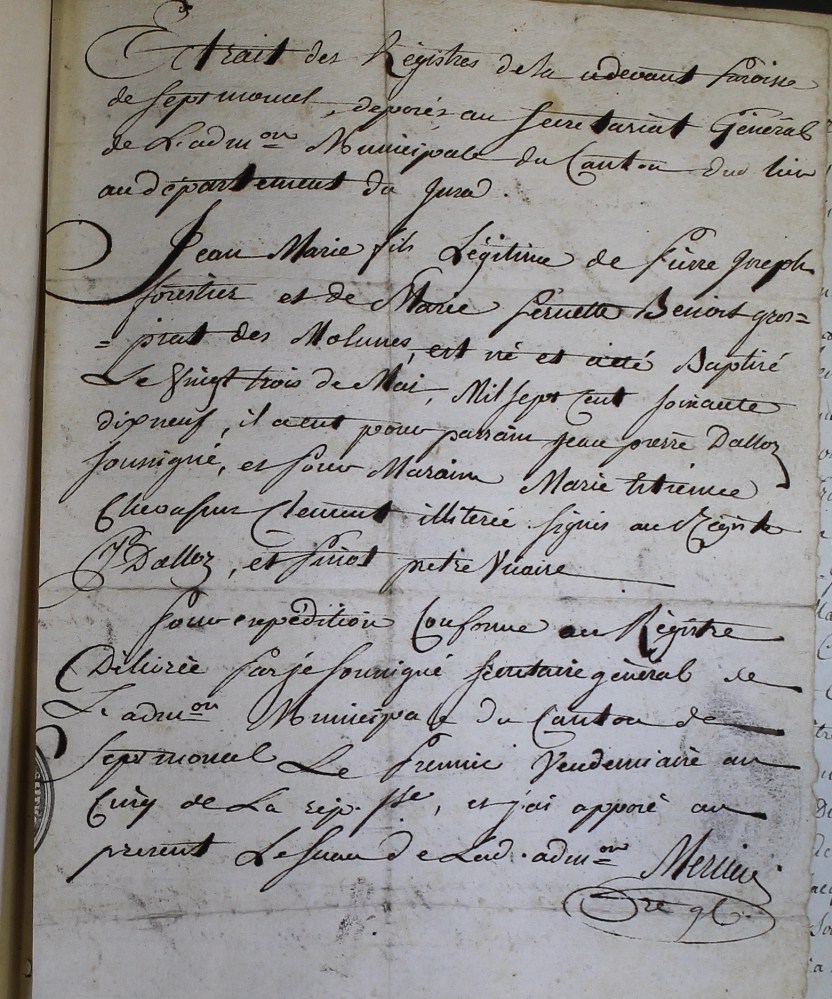 Extrait des Régistres de la cidevant Paroisse
de Septmoncel, déposés au Secretariat Général
de L'adm.on Municipale du Canton dud. lieu
au département du Jura.
Jean Marie fils Légitime de Pierre Joseph
forestier et de Marie Pernette Benoit gros=
=piat des Molunes, est né et aété Baptisé
Le Vingt trois de Mai, Mil Sept Cent soixante
dixneuf, il aeut pour parrain jean pierre Dalloz
soussigné, et pour Maraine Marie Etiennee
Chevassus Clement illiterée signés au Régistre
JP Dalloz, et Pinot pretre Vicaire
Pour expédition Conforme au Régistre
Délivrée par je soussigné secretaire général de
L'adm.on Municipale du Canton de
Septmoncel Le Premier Vendemiaire an
Cinq de La rep. fse, et j'ai apposé au
present Le Sceau de Lad. adm.on
Sre gl.